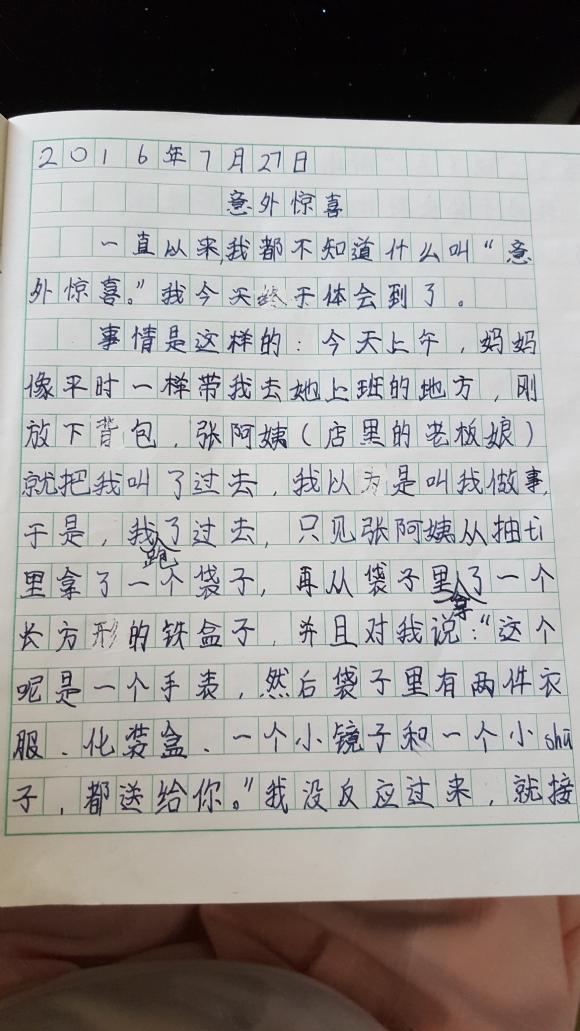 2016年7月27日
意外惊喜
一直以来,我都不知道什么叫“意
外惊喜。”我今天终于体会到了。
事情是这样的:今天上午,妈妈
像平时一样带我去她上班的地方,刚
放下背包,张阿姨(店里的老板娘)
就把我叫了过去,我以为是叫我做事,
于是,我跑了过去,只见张阿姨从抽ti
里拿了一个袋子,再从袋子里拿了一个
长方形的铁盒子,并且对我说:“这个
呢是一个手表,然后袋子里有两件衣
服、化装盒、一个小镜子和一个小shū
子,都送给你。”我没反应过来,就接